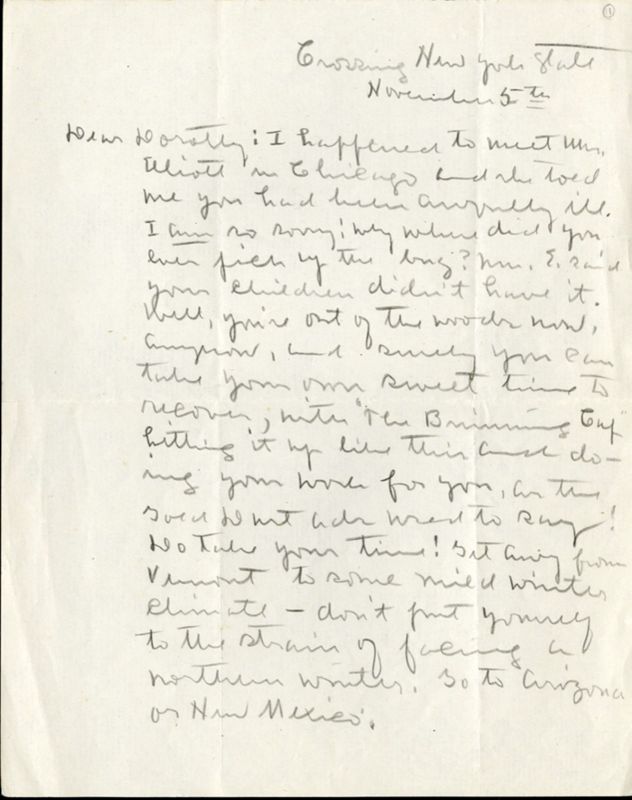 ①
Crossing New York State
November 5th
Dear Dorothy: I happened to meet Mrs.
Elliott in Chicago and she told
me you had been awfully ill.
I am so sorry! Why where did you
ever pick up the bug? Mrs. E. said
your children didn't have it.
Well, you're out of the woods now,
anyhow, and surely you can
take your own sweet time to
recover, with "The Brimming Cup"
hitting it up like this and do-
ing your work for you, as the
Gold Dust ads used to say!
Do take your time! Get away from
Vermont to some mild winter
climate – don't put yourself
to the strain of facing a
northern winter. Go to Arizona
or New Mexico.